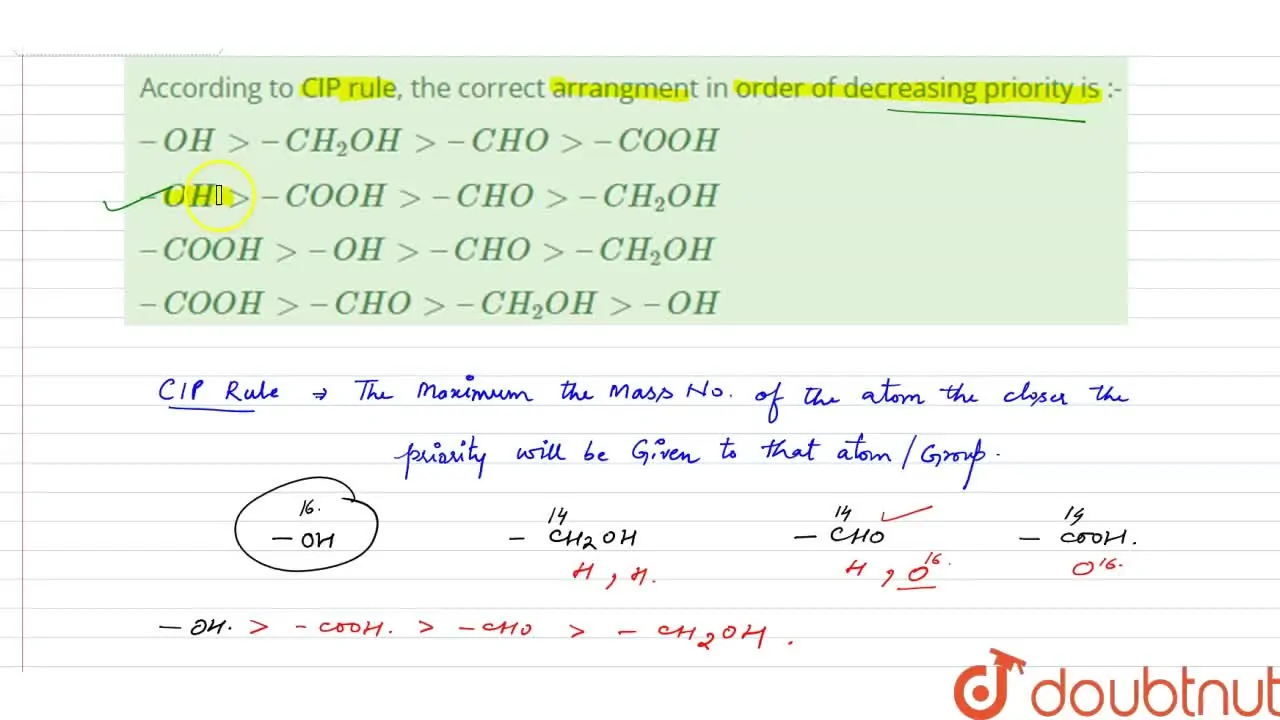 According to CIP rule, the correct arrangment in order of decreasing priority is :-
−OH > −CH₂OH > −CHO > −COOH
−OH > −COOH > −CHO > −CH₂OH
−COOH > −OH > −CHO > −CH₂OH
−COOH > −CHO > −CH₂OH > −OH
CIP Rule ⇒ The Maximum the Mass No. of the atom the closer the
priority will be Given to that atom/Group.
16. 14 14 14
−OH − CH₂OH − CHO − COOH.
H, H. H, O16. O16.
−OH. > −COOH. > −CHO > − CH₂OH.
doubtnut